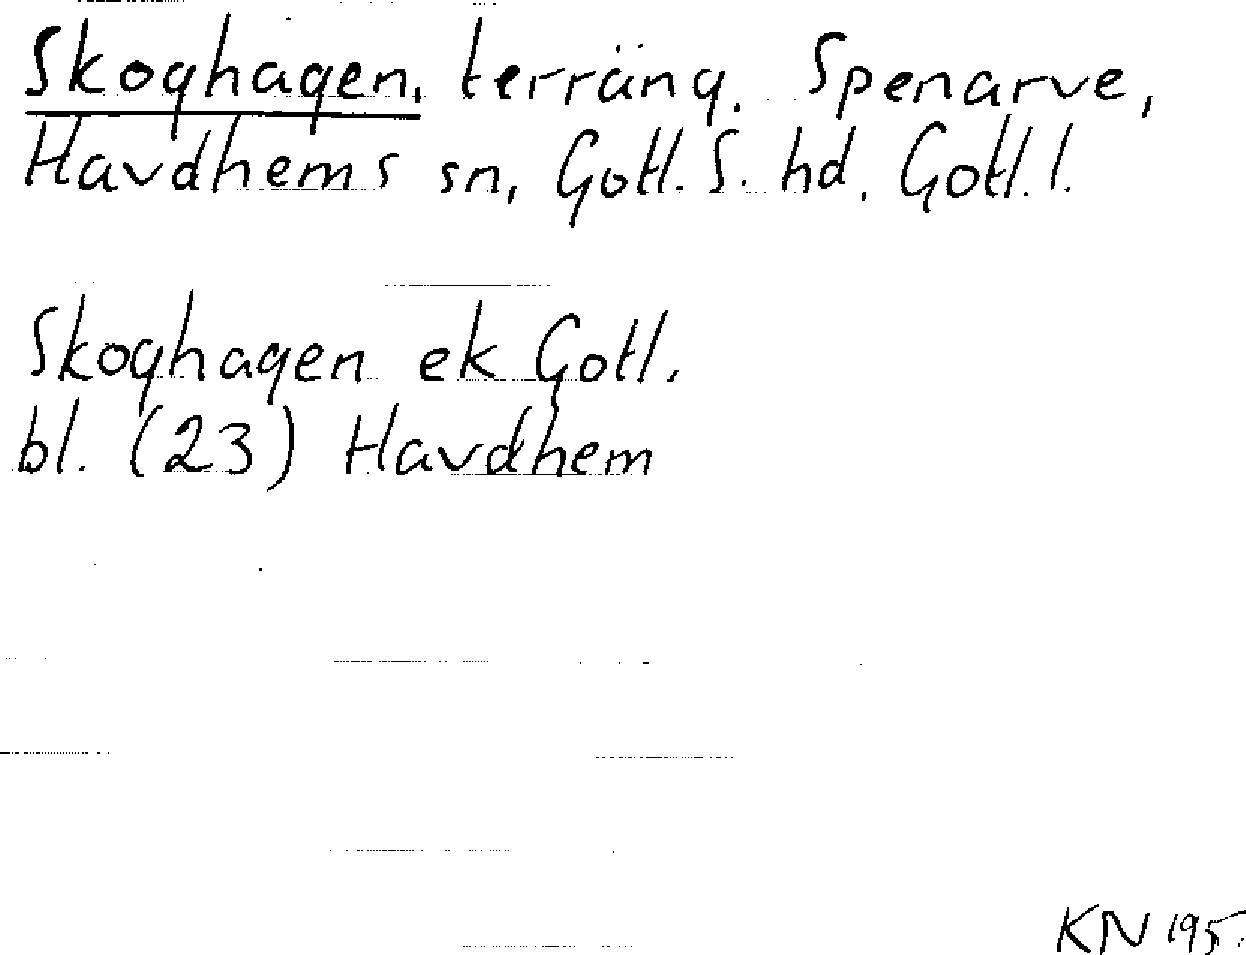 Skoghagen, terräng. Spenarve,
Havdhems sn, Gotl. S. hd, Gotl. l.
Skoghagen ek Gotl.
bl. (23) Havdhem
KN 195